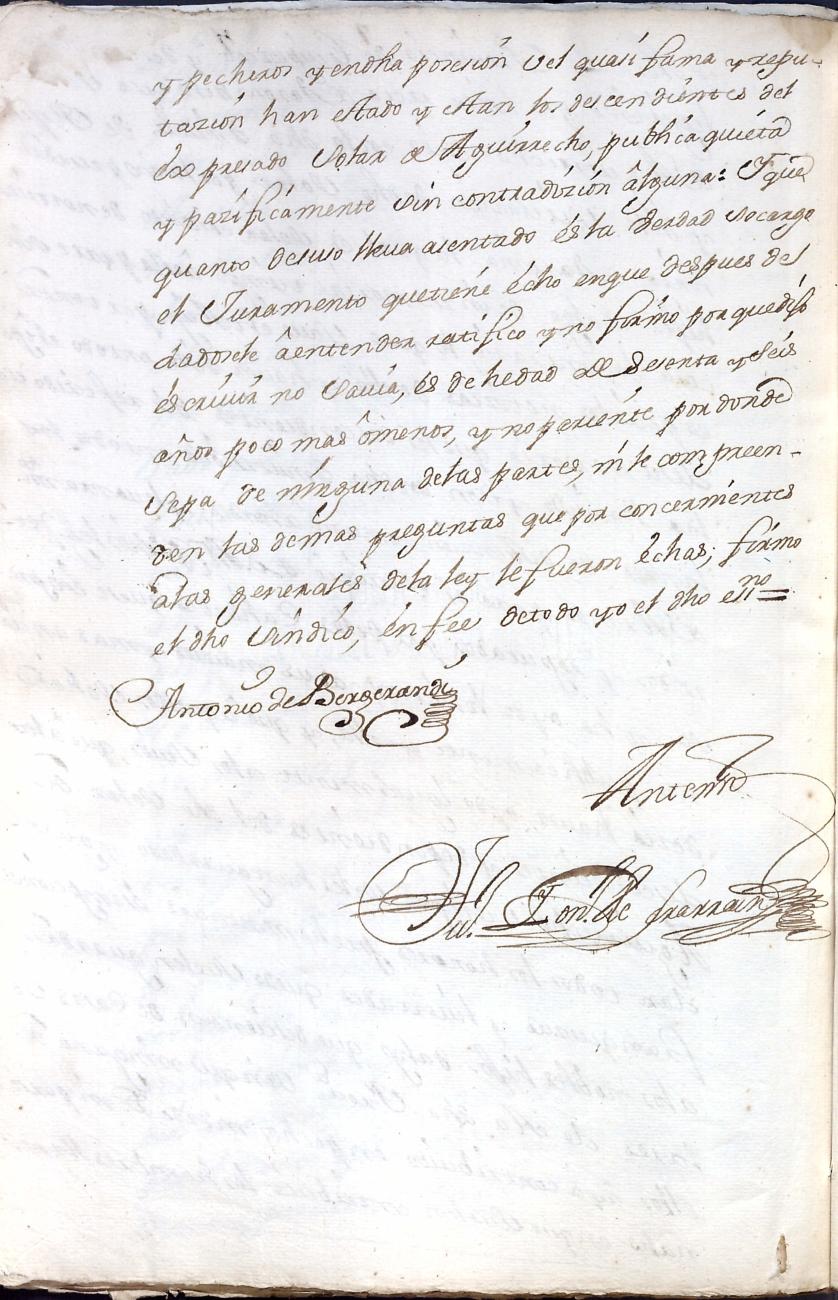 y pecheros y en dha poseción vel quasi fama y repu-
tazión han estado y estan los descendientes del
éxpresado Solar de Aguirrecho, publica quieta
y pazificamente sin contradizión âlguna: Y que
quanto desuso lleva asentado és la verdad so cargo
el Juramento que tiené écho en que, despues de
dadosele â entender ratifico y no firmo por que dijo
éscrivir no Savia, és de hedad de Sesenta y Seis
años poco mas ômenos, y no pariente por donde
Sepa de ninguna de las partes, ni le compreen-
den las demas preguntas que por concernientes
alas generales de la ley le fueron échas; firmo
el dho Síndico, én fee de todo yo el dho essno=
Antonio de Bergerandi
Ante mi